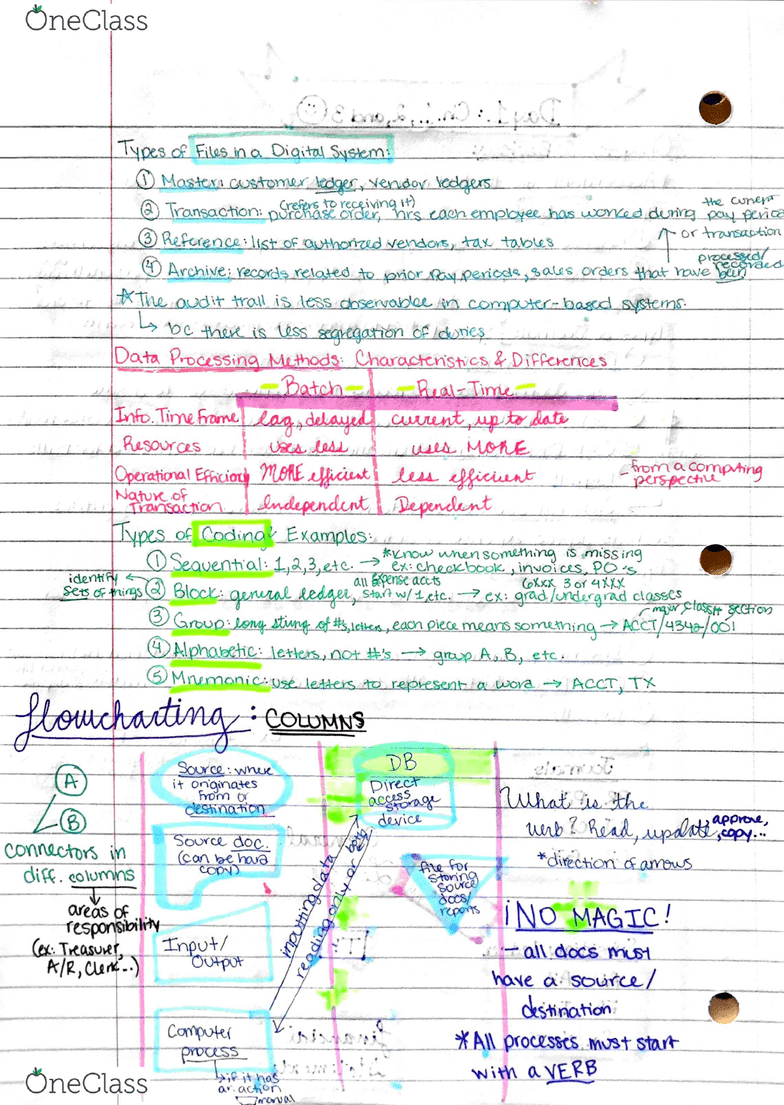 OneClass
Types of Files in a Digital System:
① Master: customer ledger, vendor ledgers
(refers to receiving it) the current
② Transaction: purchase order, hrs each employee has worked during pay period
or transaction
③ Reference: list of authorized vendors, tax tables
processed/
recorded
④ Archive: records related to prior pay periods, sales orders that have been
* The audit trail is less observable in computer-based systems.
↳ bc there is less segregation of duties
Data Processing Methods: Characteristics & Differences
Batch Real-Time
Info. Time Frame lag, delayed current, up to date
Resources uses less uses MORE
Operational Efficiency MORE efficient less efficient
- from a computing
perspective
Nature of
Transaction Independent Dependent
Types of Coding & Examples:
① Sequential: 1,2,3, etc. → *know when something is missing
ex: checkbook, invoices, PO's
identify
sets of things
all expense accts 6xxx 3 or 4XXX
② Block: general ledger, start w/ 1, etc. → ex: grad/undergrad classes
major, class#, section
③ Group: long string of #s, letters, each piece means something → ACCT/4342/001
④ Alphabetic: letters, not #'s → group A, B, etc.
⑤ Mnemonic: use letters to represent a word → ACCT, TX
flowcharting: COLUMNS
A
B
connectors in
diff. columns
areas of
responsibility
(ex: Treasurer,
A/R, Clerk...)
Source: where
it originates
from or
destination
Source doc.
(can be hard
copy)
Input/
Output
Computer
process
↳ if it has
an action
manual
inputting data
reading only or
DB
Direct
access
storage
device
file for
storing
source
docs/
reports
What is the
verb? Read, update, approve,
copy...
*direction of arrows
¡NO MAGIC!
- all docs must
have a source/
destination
*All processes must start
with a VERB
OneClass